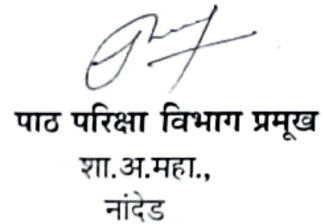 पाठ परिक्षा विभाग प्रमूख
शा.अ.महा.,
नांदेड